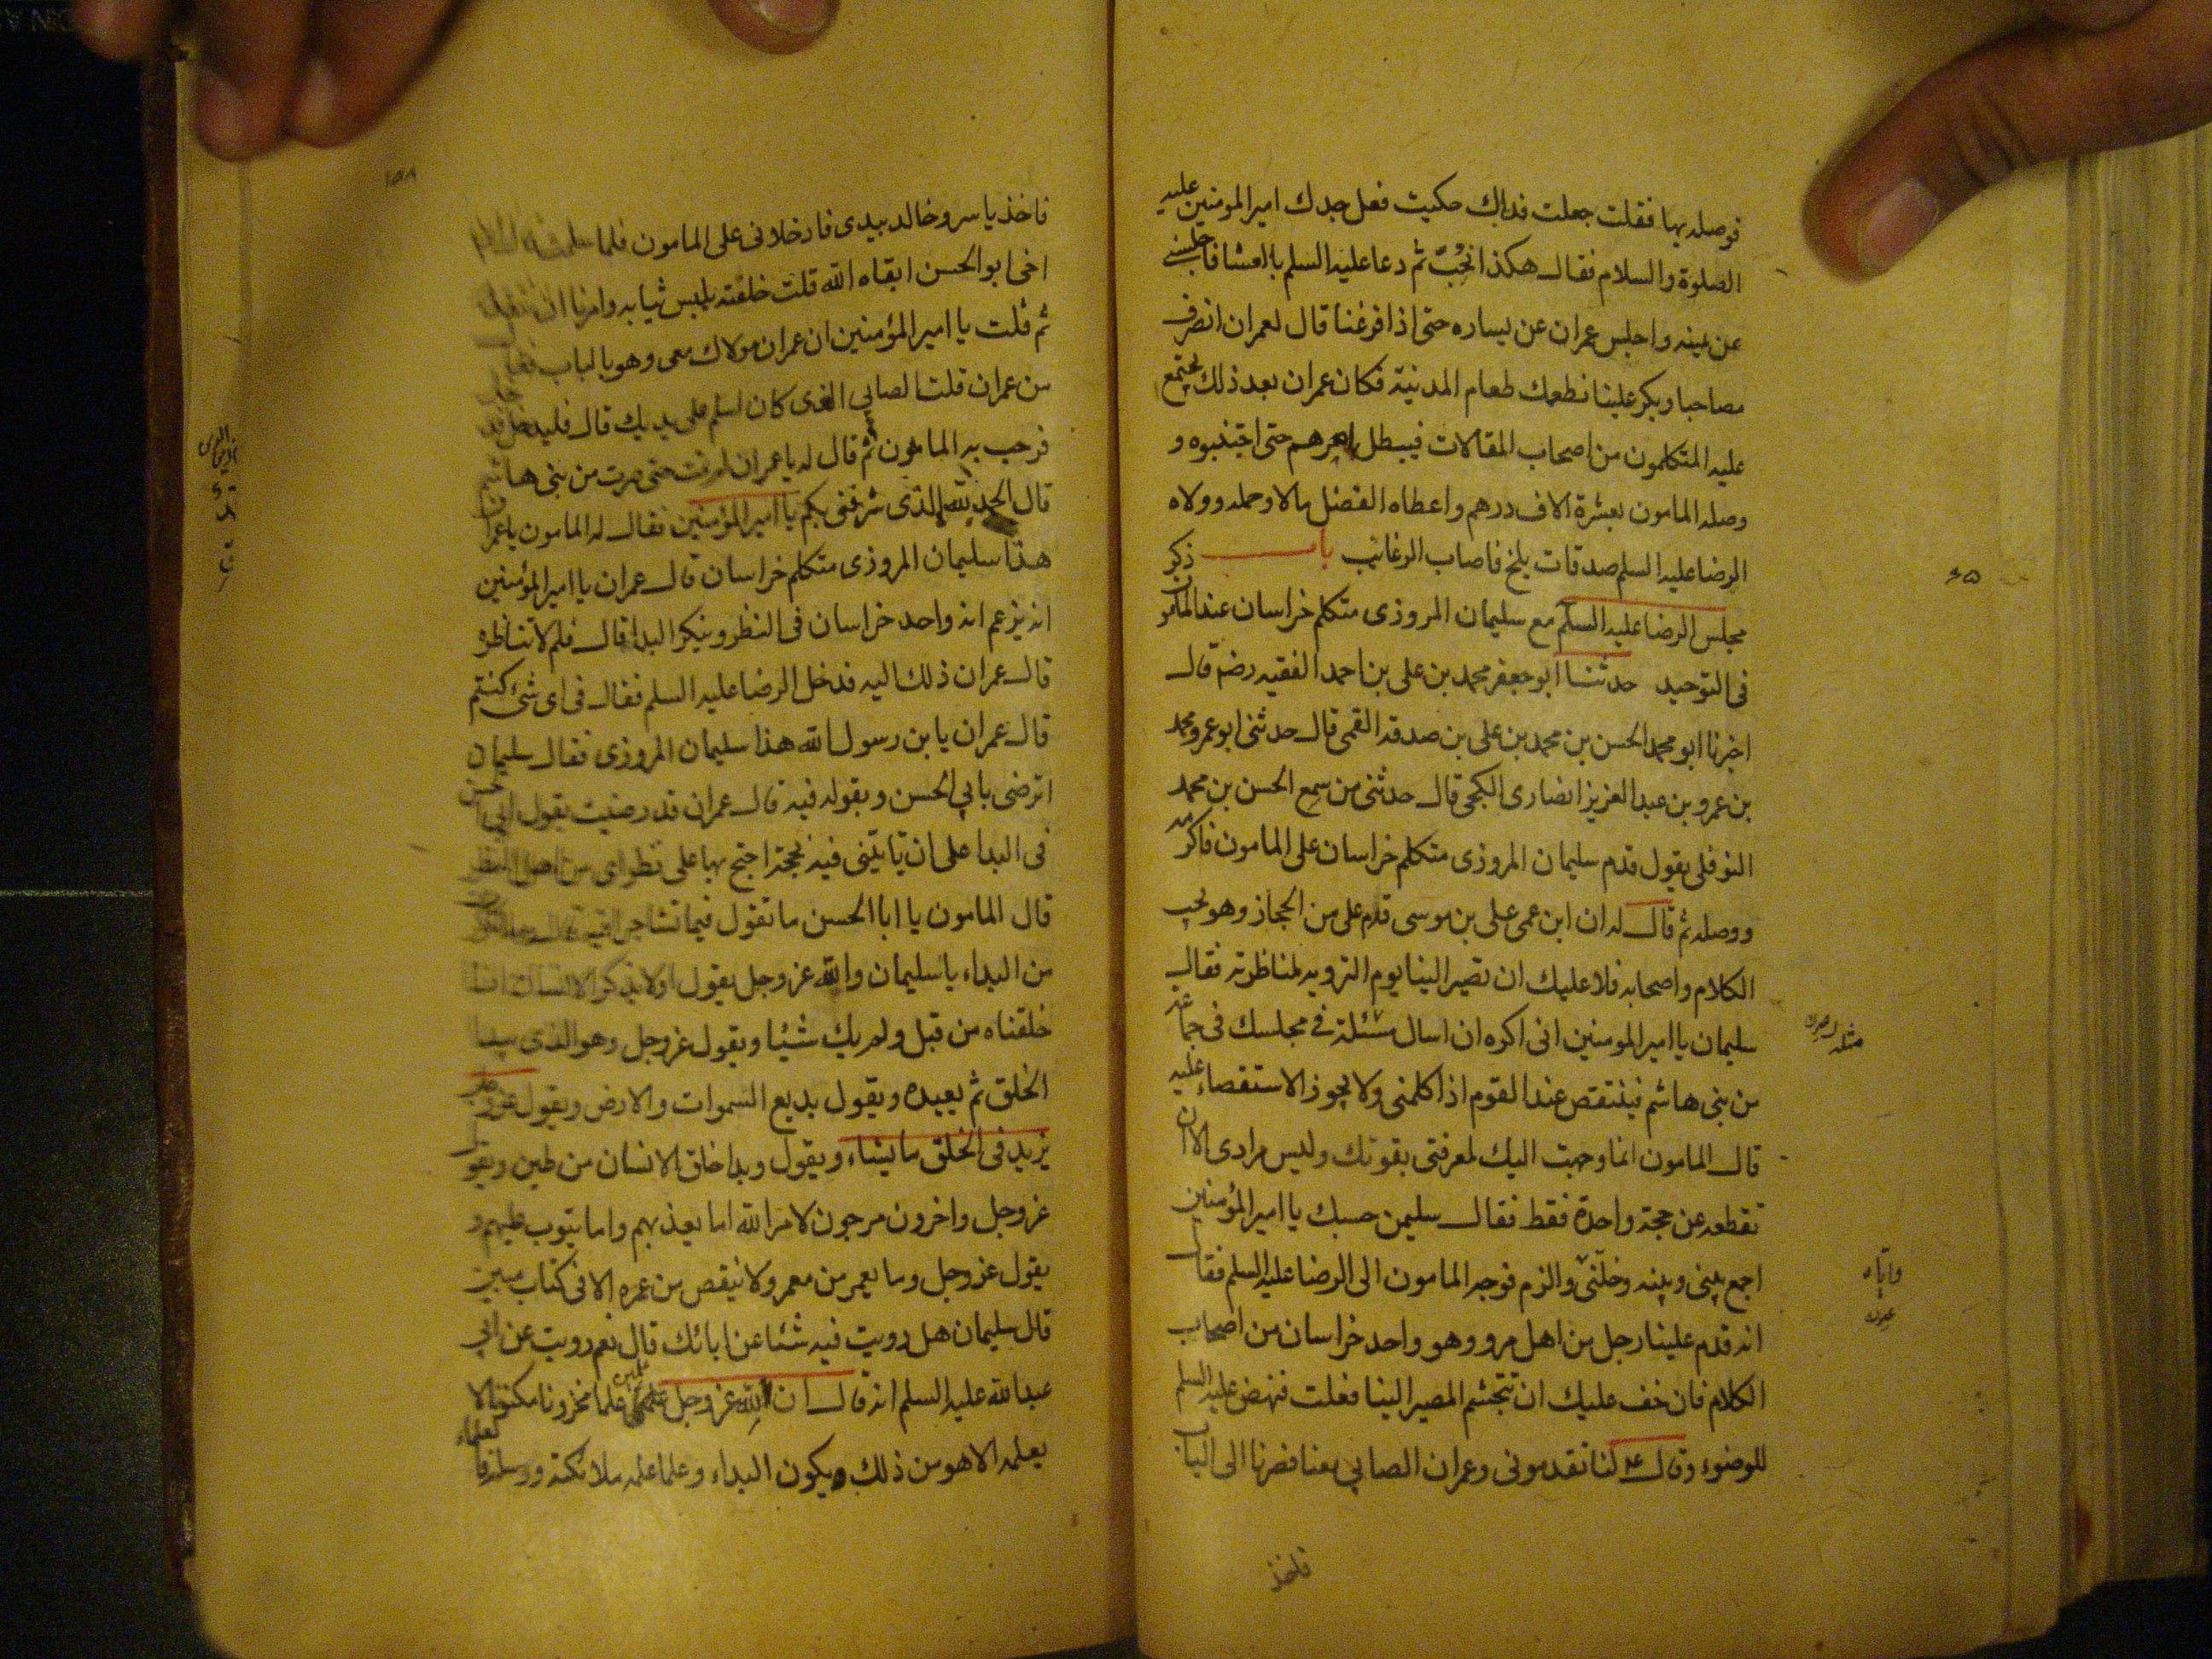 فوصله بها فقلت جعلت فداك حكيت فعل جدك امير المومنين عليه
الصلوة والسلام فقال هكذا نجب ثم دعا عليه السلم بالعشا فاجلسني
عن يمينه واجلس عمران عن يساره حتى اذا فرغنا قال لعمران انصرف
مصاحبا وبكر علينا نطعمك طعام المدنية فكان عمران بعد ذلك يجتمع
عليه المتكلمون من اصحاب المقالات فيبطل امرهم حتى اجتنبوه و
وصله المامون بعشرة الاف درهم واعطاه الفضل مالا وحمله وولاه
الرضا عليه السلم صدقات بلخ فاصاب الرغائب باب ذكر
مجلس الرضا عليه السلم مع سليمان المروزى متكلم خراسان عند المامون
فى التوحيد حدثنا ابو جعفر محمد بن على بن احمد الفقيه رضه قال
اخبرنا ابو محمد الحسن بن محمد بن على بن صدقه القمى قال حدثنى ابو عمرو محمد
بن عمرو بن عبد العزيز انصارى الكجى قال حدثنى من سمع الحسن بن محمد
النوفلى يقول قدم سليمان المروزى متكلم خراسان على المامون فاكرمه
ووصله ثم قال له ان ابن عمى على بن موسى قدم على من الحجاز وهو يحب
الكلام واصحابه فلا عليك ان تصير الينا يوم الترويه لمناظرته فقال
سليمان يا امير المومنين انى اكره ان اسال مسئلة فى مجلسك فى جماعة
من بنى هاشم فينتقص عند القوم اذا كلمنى ولا يجوز الاستقصاء عليه
قال المامون انما وجهت اليك لمعرفتى بقوتك وليس مرادى الا ان
تقطعه عن حجة واحدة فقط فقال سليمن حسبك يا امير المؤمنين
اجمع بينى وبينه وخلنى والزم فوجه المامون الى الرضا عليه السلم فقال
انه قدم علينا رجل من اهل مرو وهو واحد خراسان من اصحاب
الكلام فان خف عليك ان تتجشم المصير الينا فعلت فنهض عليه السلم
للوضوء وقال لنا تقدمونى وعمران الصابى معنا فصرنا الى الباب
فاخذ
٦٥
واياه
١٥٨
فاخذ ياسر وخالد بيدى فادخلانى على المامون فلما سلمت قال اين
اخى ابو الحسن ابقاه الله قلت خلفته يلبس ثيابه وامرنا ان نتقدم
ثم قلت يا امير المؤمنين ان عمران مولاك معى وهو بالباب فقال
من عمران قلت الصابى الذى كان اسلم على يديك قال فليدخل فدخل
فرحب به المامون ثم قال له يا عمران لم تمت حتى صرت من بنى هاشم
قال الحمد لله الذى شرفنى بكم يا امير المؤمنين فقال له المامون يا عمران
هذا سليمان المروزى متكلم خراسان قال عمران يا امير المؤمنين
انه يزعم انه واحد خراسان فى النظر وينكر البدا قال فلم لا تناظره
قال عمران ذلك اليه فدخل الرضا عليه السلم فقال فى اى شئ كنتم
قال عمران يا بن رسول الله هذا سليمان المروزى فقال سليمان
اترضى بابى الحسن وبقوله فيه قال عمران قد رضيت بقول ابى الحسن
فى البدا على ان ياتينى فيه بحجة احتج بها على نظراى من اهل النظر
قال المامون يا ابا الحسن ما تقول فيما تشاجرا فيه قال وما انكرت
من البداء يا سليمان والله عز وجل يقول اولا يذكر الانسان انا
خلقناه من قبل ولم يك شيئا ويقول عز وجل وهو الذى يبدا
الخلق ثم يعيده ويقول بديع السموات والارض ويقول عز وجل
يزيد فى الخلق ما يشاء ويقول وبدا خلق الانسان من طين ويقول
عز وجل واخرون مرجون لامر الله اما يعذبهم واما يتوب عليهم و
يقول عز وجل وما يعمر من معمر ولا ينقص من عمره الا فى كتاب مبين
قال سليمان هل رويت فيه شئا عن ابائك قال نعم رويت عن ابى
عبد الله عليه السلم انه قال ان لله عز وجل علمين علما مخزونا مكنونا لا
يعلمه الا هو من ذلك يكون البداء وعلما علمه ملائكته ورسله فالعلماء